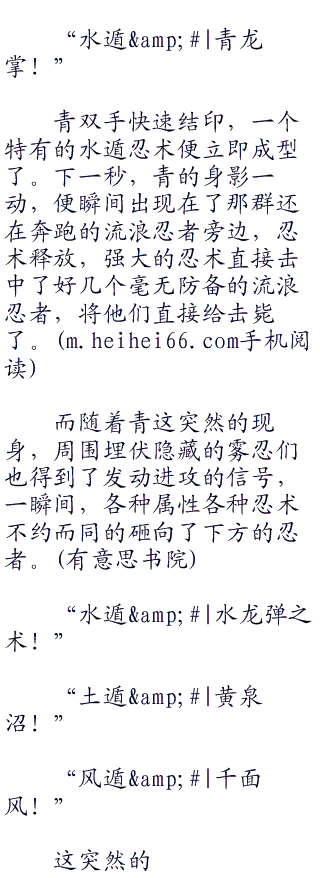 “水遁&amp;#|青龙
掌！”
青双手快速结印，一个
特有的水遁忍术便立即成型
了。下一秒，青的身影一
动，便瞬间出现在了那群还
在奔跑的流浪忍者旁边，忍
术释放，强大的忍术直接击
中了好几个毫无防备的流浪
忍者，将他们直接给击毙
了。(m.heihei66.com手机阅
读)
而随着青这突然的现
身，周围埋伏隐藏的雾忍们
也得到了发动进攻的信号，
一瞬间，各种属性各种忍术
不约而同的砸向了下方的忍
者。(有意思书院)
“水遁&amp;#|水龙弹之
术！”
“土遁&amp;#|黄泉
沼！”
“风遁&amp;#|千面
风！”
这突然的